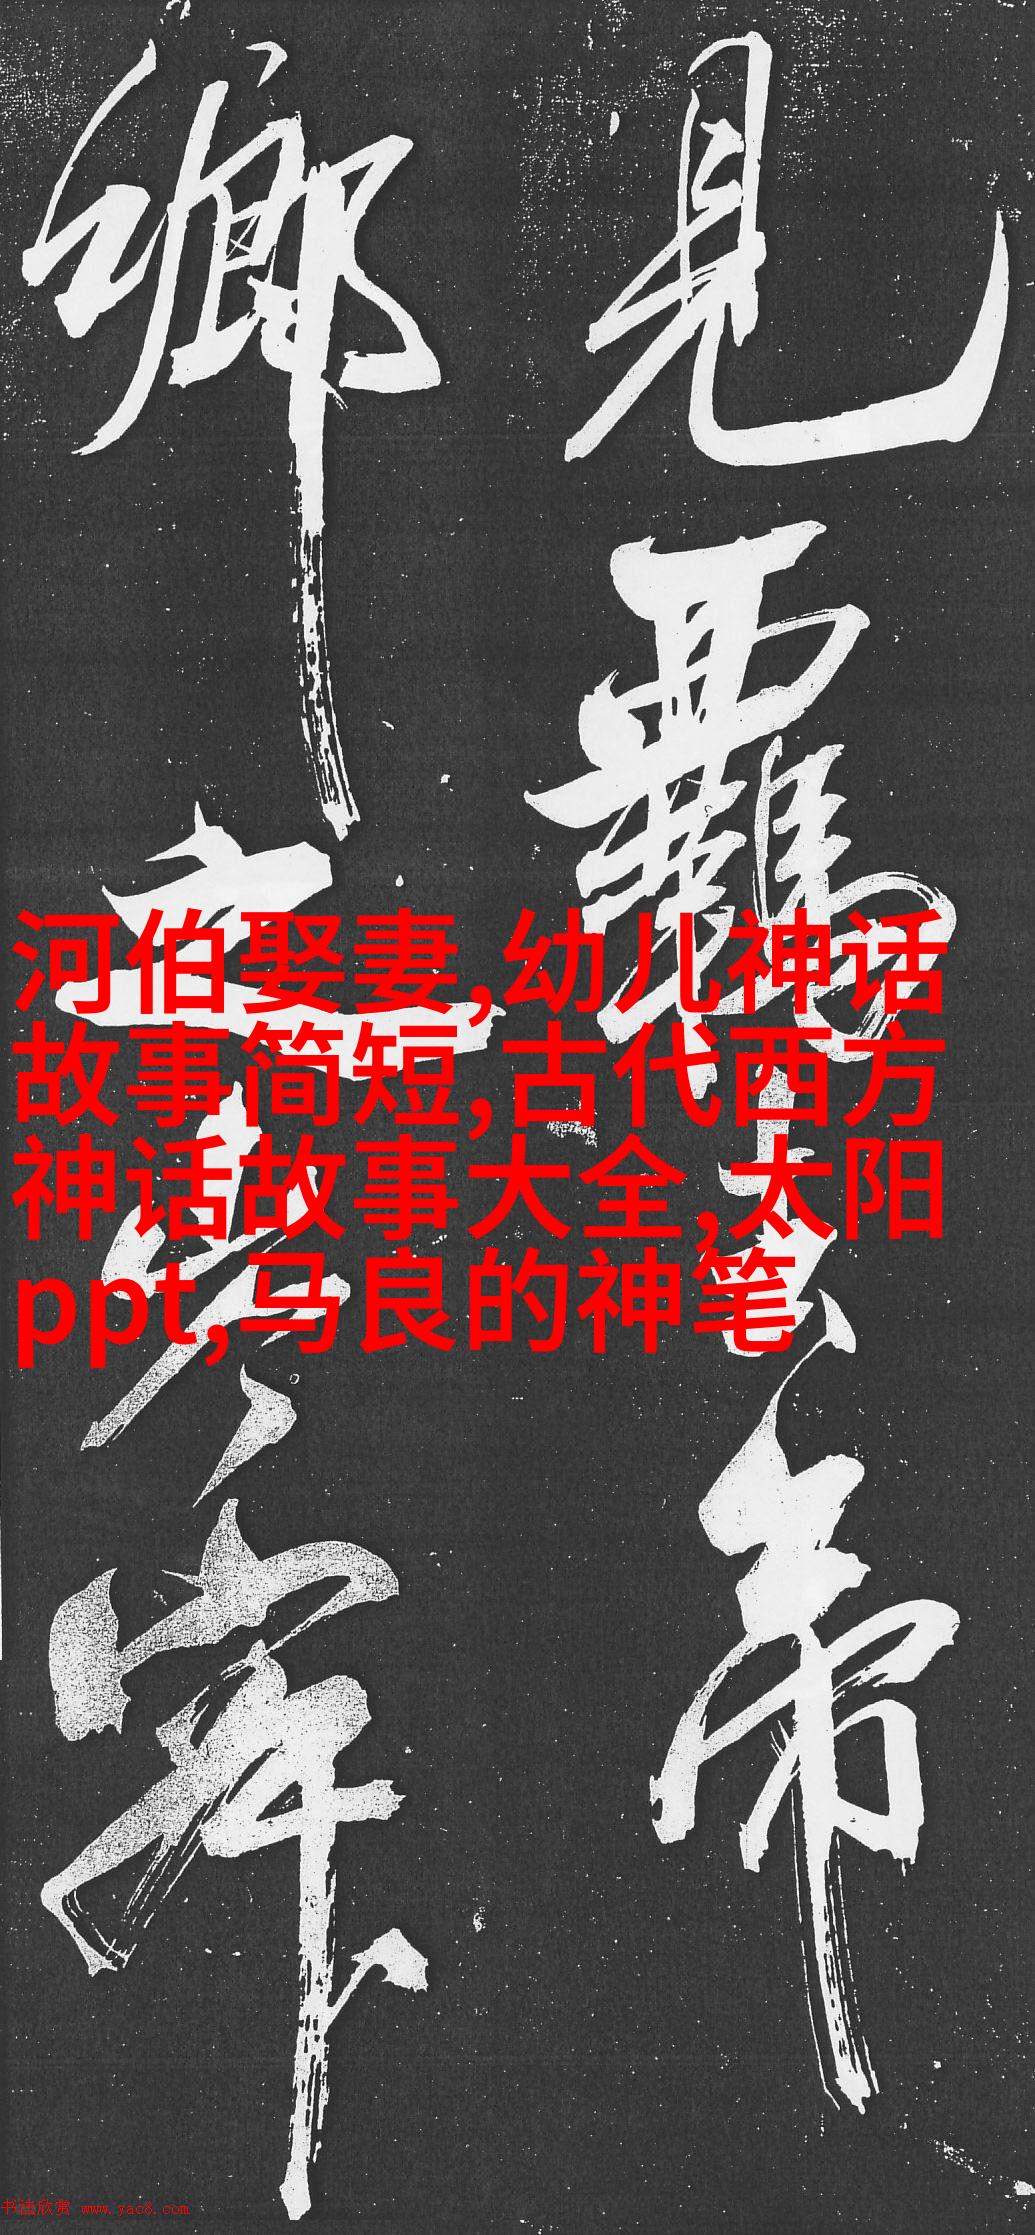 見羈
帝
鄉
河伯娶妻,幼儿神话
故事简短,古代西方
神话故事大全,太阳
ppt,马良的神笔
书法欣赏 www.yac8.com